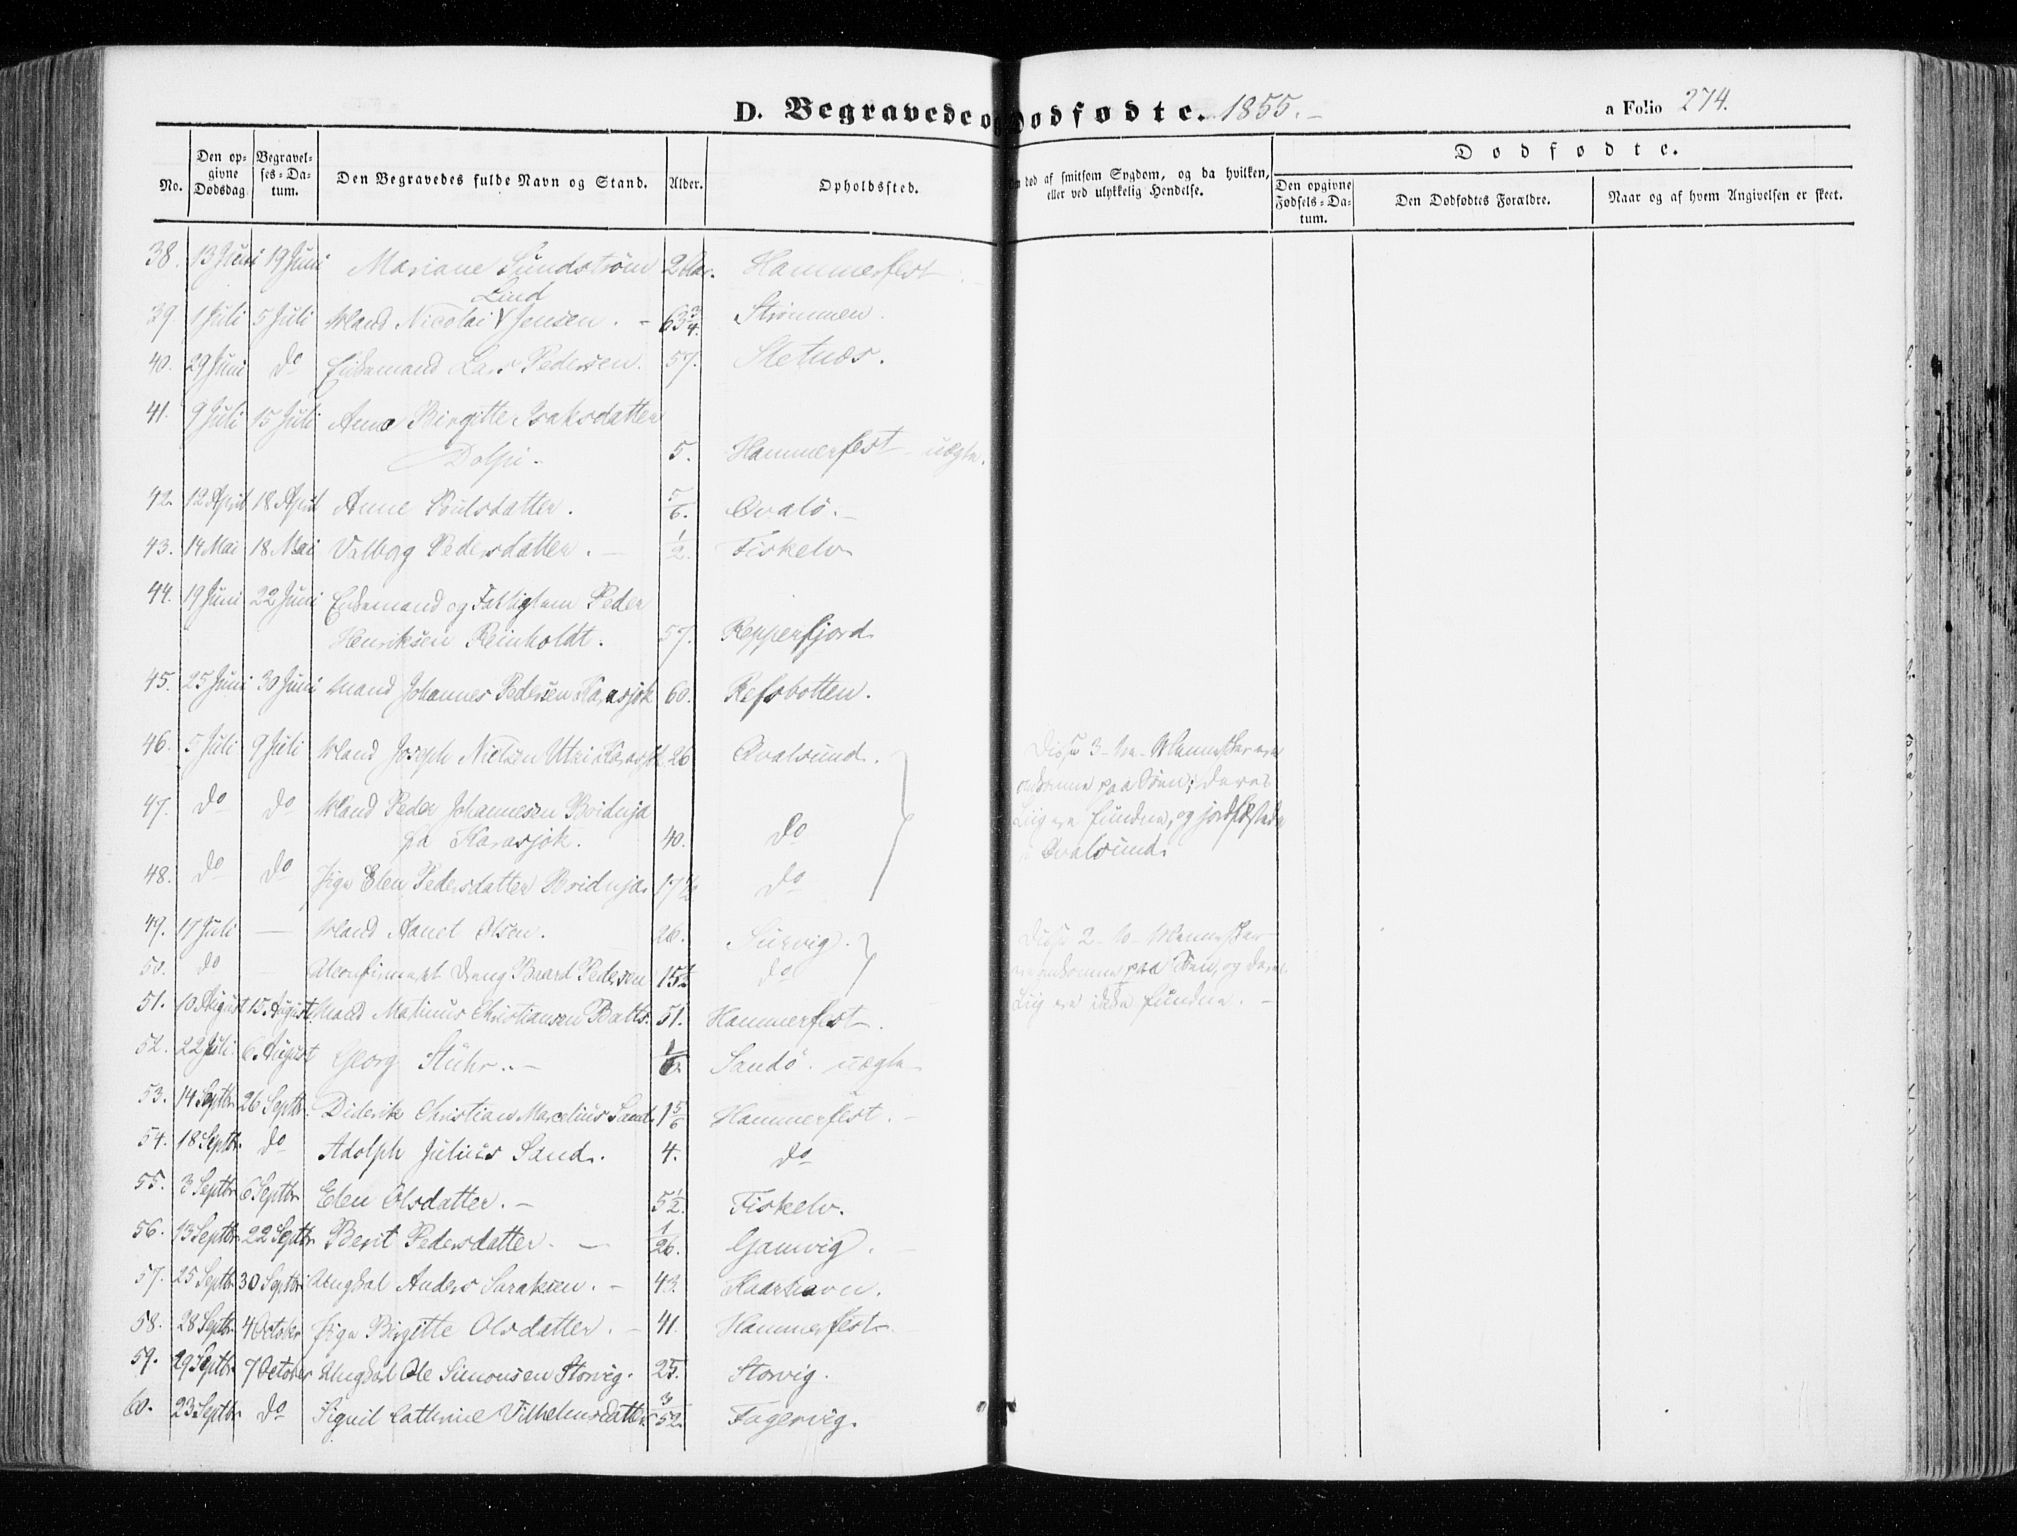 D. Begravede og Dødfødte. 1855.
a Folio 274.
No.
Den opgivne Dødsdag.
Begravelses-Datum.
Den Begravedes fulde Navn og Stand.
Alder.
Opholdssted.
død af smitsom Sygdom, og da hvilken,
eller ved ulykkelig Hendelse.
Dødfødte.
Den opgivne Fødsels-Datum.
Den Dødfødtes Forældre.
Naar og af hvem Angivelsen er skeet.
38. 13 Juni 19 Juni Mariane Sundstrøm 2 Aar. Hammerfest
Lind
39. 1 Juli 5 Juli Mand Nicolai V Jensen. 63 3/4. Strømmen.
40. 29 Juni do Enkemand Lars Pedersen. 57. Sletnæs.
41. 9 Juli 15 Juli Anne Birgitte Isaksdatter
Dolpi. 5. Hammerfest - uægte.
42. 12 April 18 April Anne Poulsdatter. 5/6. Qvalø.
43. 14 Mai 18 Mai Valborg Pedersdatter. 1/2. Fiskelv
44. 19 Juni 22 Juni Enkemand og Fattiglem Peder
Henriksen Reinholdt. 57. Repperfjord
45. 25 Juni 30 Juni Mand Johannes Pedersen Karasjok 60. Refsbotten.
46. 5 Juli 9 Juli Mand Joseph Nielsen Utsi Karasjok 26 Qvalsund.
Disse 3 Mennesker ere
omkomne paa Søen; deres
Liig ere fundne, og jordfæstede
Qvalsund.
47. do do Mand Peder Johannesen Bridnja
fra Karasjok. 40. do
48. do do Pige Elen Pedersdatter Bridnja 17 1/2 do
49. 17 Juli — Mand Aanet Olsen. 26. Survig.
Disse 2 Mennesker
ere omkomne paa Søen, og deres
Liig ere ikke fundne.
50. do — Uconfirmert Dreng Baard Pedersen 15 1/2 do
51. 10 August 15 August Mand Matinus Christiansen Balts. 51. Hammerfest.
52. 22 Juli 6 August Georg Stuhr. 1/6. Sandø. uægte
53. 14 Septbr 26 Septbr Diderik Christian Marcelius Sand. 1 5/6 Hammerfest.
54. 18 Septbr. do Adolph Julius Sand. 4. do
55. 3 Septbr 6 Septbr Elen Olsdatter. 5 1/2. Fiskelv.
56. 13 Septbr 22 Septbr Berit Pedersdatter. 1/26. Gamvig.
57. 25 Septbr 30 Septbr Ungkal Anders Saraksen. 43. Kaarhavn.
58. 28 Septbr. 4 October Pige Birgitte Olsdatter. 41. Hammerfest
59. 29 Septbr. 7 October Ungkarl Ole Simonsen Storvig. 25. Storvig.
60. 23 Septbr do Sigvil Cathrine Vilhelmsdatter 3/52. Fagervig.